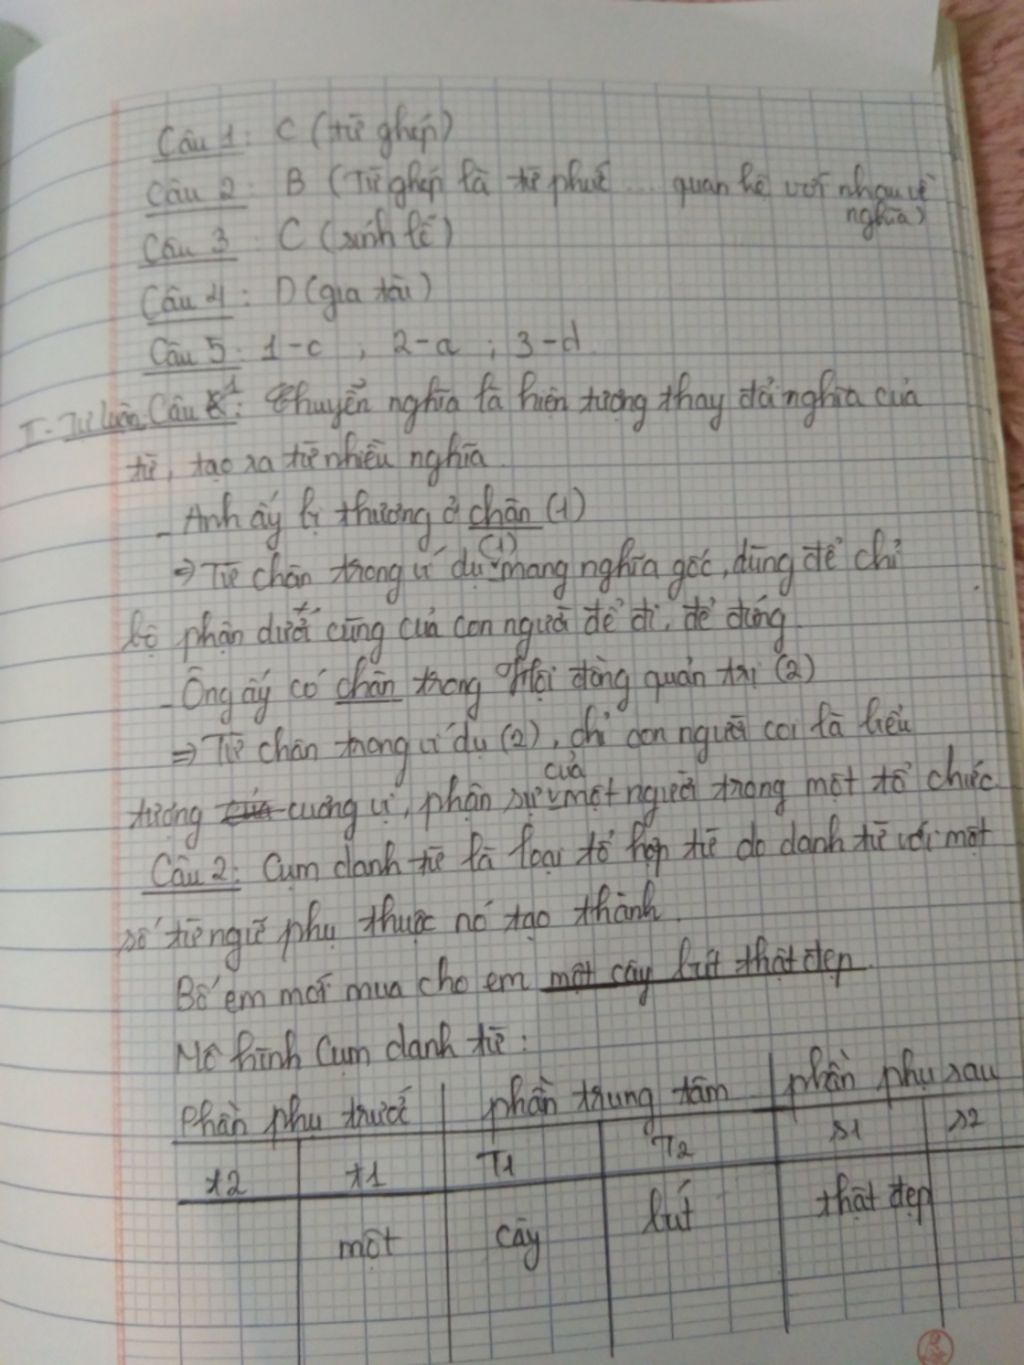 Câu 1: C (từ ghép)
Câu 2: B (Từ ghép là từ phức ... quan hệ với nhau về
nghĩa)
Câu 3: C (sính lễ)
Câu 4: D (gia tài)
Câu 5: 1-c, 2-a; 3-d
I- Tự luận Câu 1: Chuyển nghĩa là hiện tượng thay đổi nghĩa của
từ, tạo ra từ nhiều nghĩa.
- Anh ấy bị thương ở chân (1)
(1)
⇒ Từ chân trong ví dụ mang nghĩa gốc, dùng để chỉ
bộ phận dưới cùng của con người để đi, để đứng.
- Ông ấy có chân trong Hội đồng quản trị (2)
⇒ Từ chân trong ví dụ (2), chỉ con người coi là biểu
của
tượng cương vị, phận sự một người trong một tổ chức.
Câu 2: Cụm danh từ là loại tổ hợp từ do danh từ với một
số từ ngữ phụ thuộc nó tạo thành.
Bố em mới mua cho em một cây bút thật đẹp.
Mô hình Cụm danh từ:
Phần phụ trước phần trung tâm phần phụ sau
t2 t1 T1 T2 s1 s2
một cây bút thật đẹp